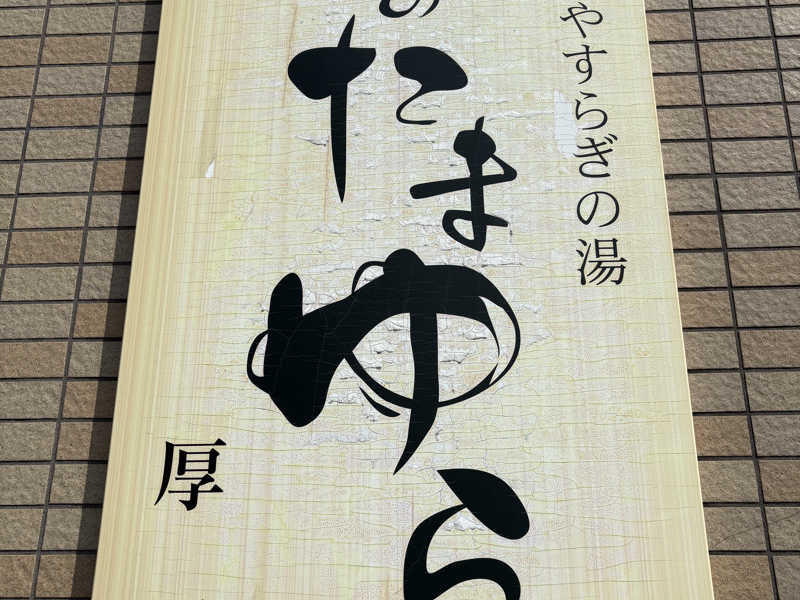 やすらぎの湯
のたまゆら
厚